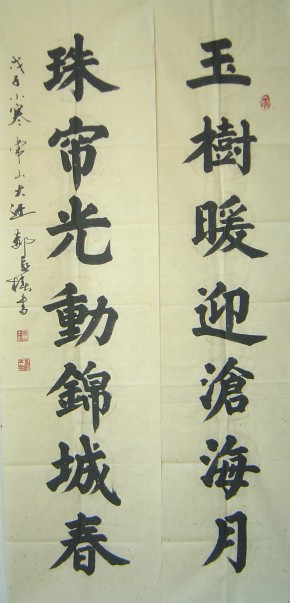 玉樹暖迎滄海月
珠帘光動錦城春
戊子小寒常山大
書